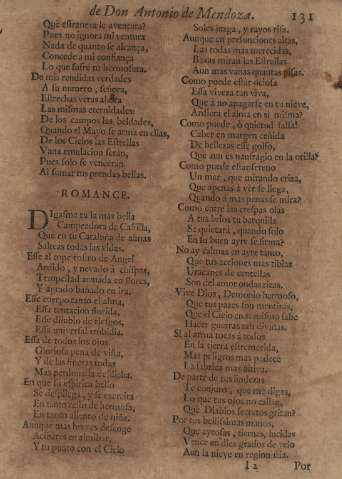 de Don Antonio de Mendoza. 131
Què estraneza le aventura?
Pues no ignora mi ventura
Nada de quanto se alcança,
Concede à mi confiança
Lo que sufre tu hermosura.
De mis rendidas verdades
A tu numero, señora,
Estrechas veras ahora
Las mismas eternidades
De los campos las beldades,
Quando el Mayo se arma en ellas,
De los Cielos las Estrellas
Vana emulacion serán,
Pues solo se vencerán
Al sumar tus prendas bellas.
ROMANCE.
DIgasme tu la mas bella
Campeadora de Castilla,
Que en tu Catalina de almas
Salteas todas las vidas.
Esse al tope tosiro de Angel
Ardido, y nevado à chispas,
Tempestad armada en flores,
Y agrado bañado en ira.
Esse cuerpo tanto el alma,
Essa tentacion florida,
Esse diluvio de riesgos,
Essa universal embidia.
Essa de todos los ojos
Gloriosa pena de vista,
Y de las fieras todas
Mas persumida de linda.
En que la espiritu bello
Se despliega, y se exercita
En tanto cielo de hermosa,
En tanto aliento de niña.
Aunque mas hiervas descoge
Aciertes en almibar,
Y tu punto con el Cielo
Soles traga, y rayos risa.
Aunque en presunciones altas,
Las todas mas merecidas,
Baxas miran las Estrellas
Aun mas vanas quantas pisas.
Como puede estar ociosa
Essa viveza tan viva,
Que à no apagarse en tu nieve,
Ardiera el alma en si misma?
Como puede, ò quietud falsa!
Caber en margen ceñida
De bellezas esse golfo,
Que aun es naufragio en la orilla?
Como puede estar sereno
Un mar, que mirando eriza,
Que apenas à ver se llega,
Quando à mas penas se mira?
Como entre las crespas olas
A tus brios tu barquilla
Se quietará, quando solo
En su buen ayre se firma?
No ay calmas en ayre tanto,
Que tus acciones mas tibias
Uracanes de centellas
Son del amor ondas rizas.
Vive Dios, Demonio hermoso,
Que tus pazes son mentiras,
Que el Cielo en si mismo sabe
Hacer guerras tan divinas.
Si al arma tocas à todos
En la tierra estremecida,
Mas peligros mas padece
La fabrica mas altiva.
De parte de tus lindezas
Te conjuro, que me digas,
Lo que tus ojos no callan,
Què Diablos secretos gritan?
Por tus bellisimas manos,
Que ayrosas, tiernas, lucidas
Vence en diez grados de yelo
Aun la nieve en region fria.
I 2 Por